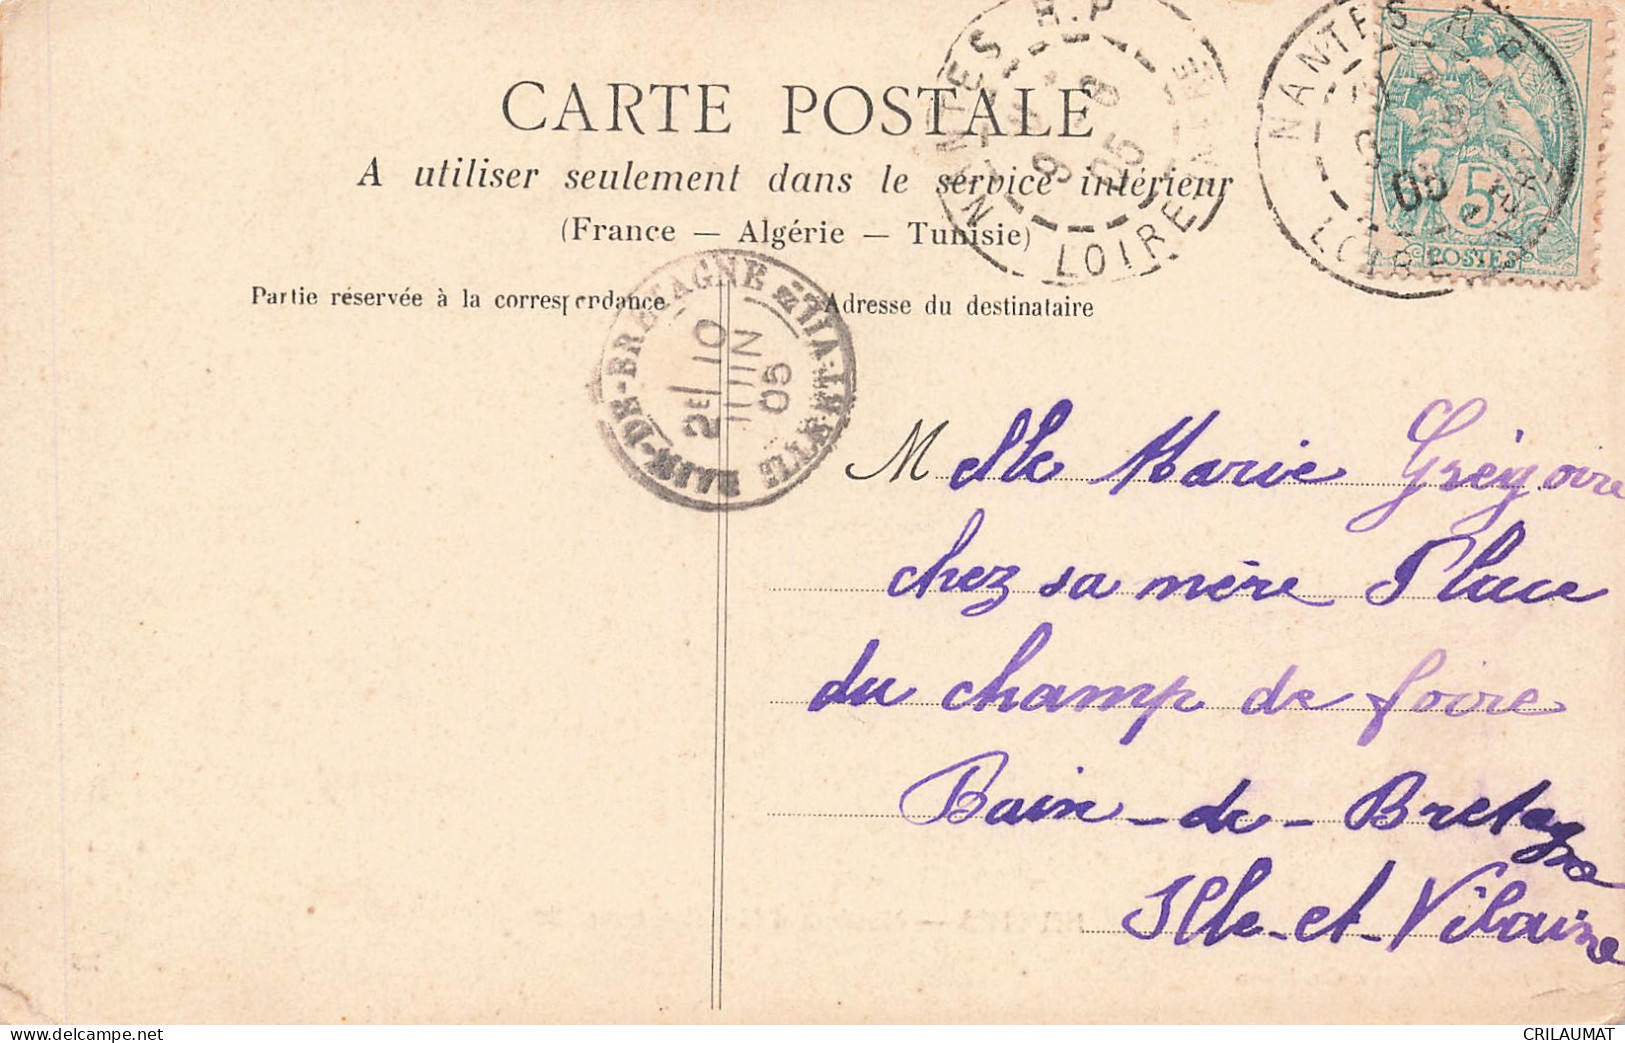 CARTE POSTALE
A utiliser seulement dans le service intérieur
(France — Algérie — Tunisie)
Partie réservée à la correspondance
Adresse du destinataire
NANTES R.P.
9 05
LOIRE
NANTES R.P
05
LOIRE
5
POSTES
BAIN-DE-BRETAGNE ILLE-ET-VILAINE
2E 10
JUIN
05
Melle Marie Grégoire
chez sa mère Place
du champ de foire
Bain-de-Bretagne
Ille-et-Vilaine
CRILAUMAT